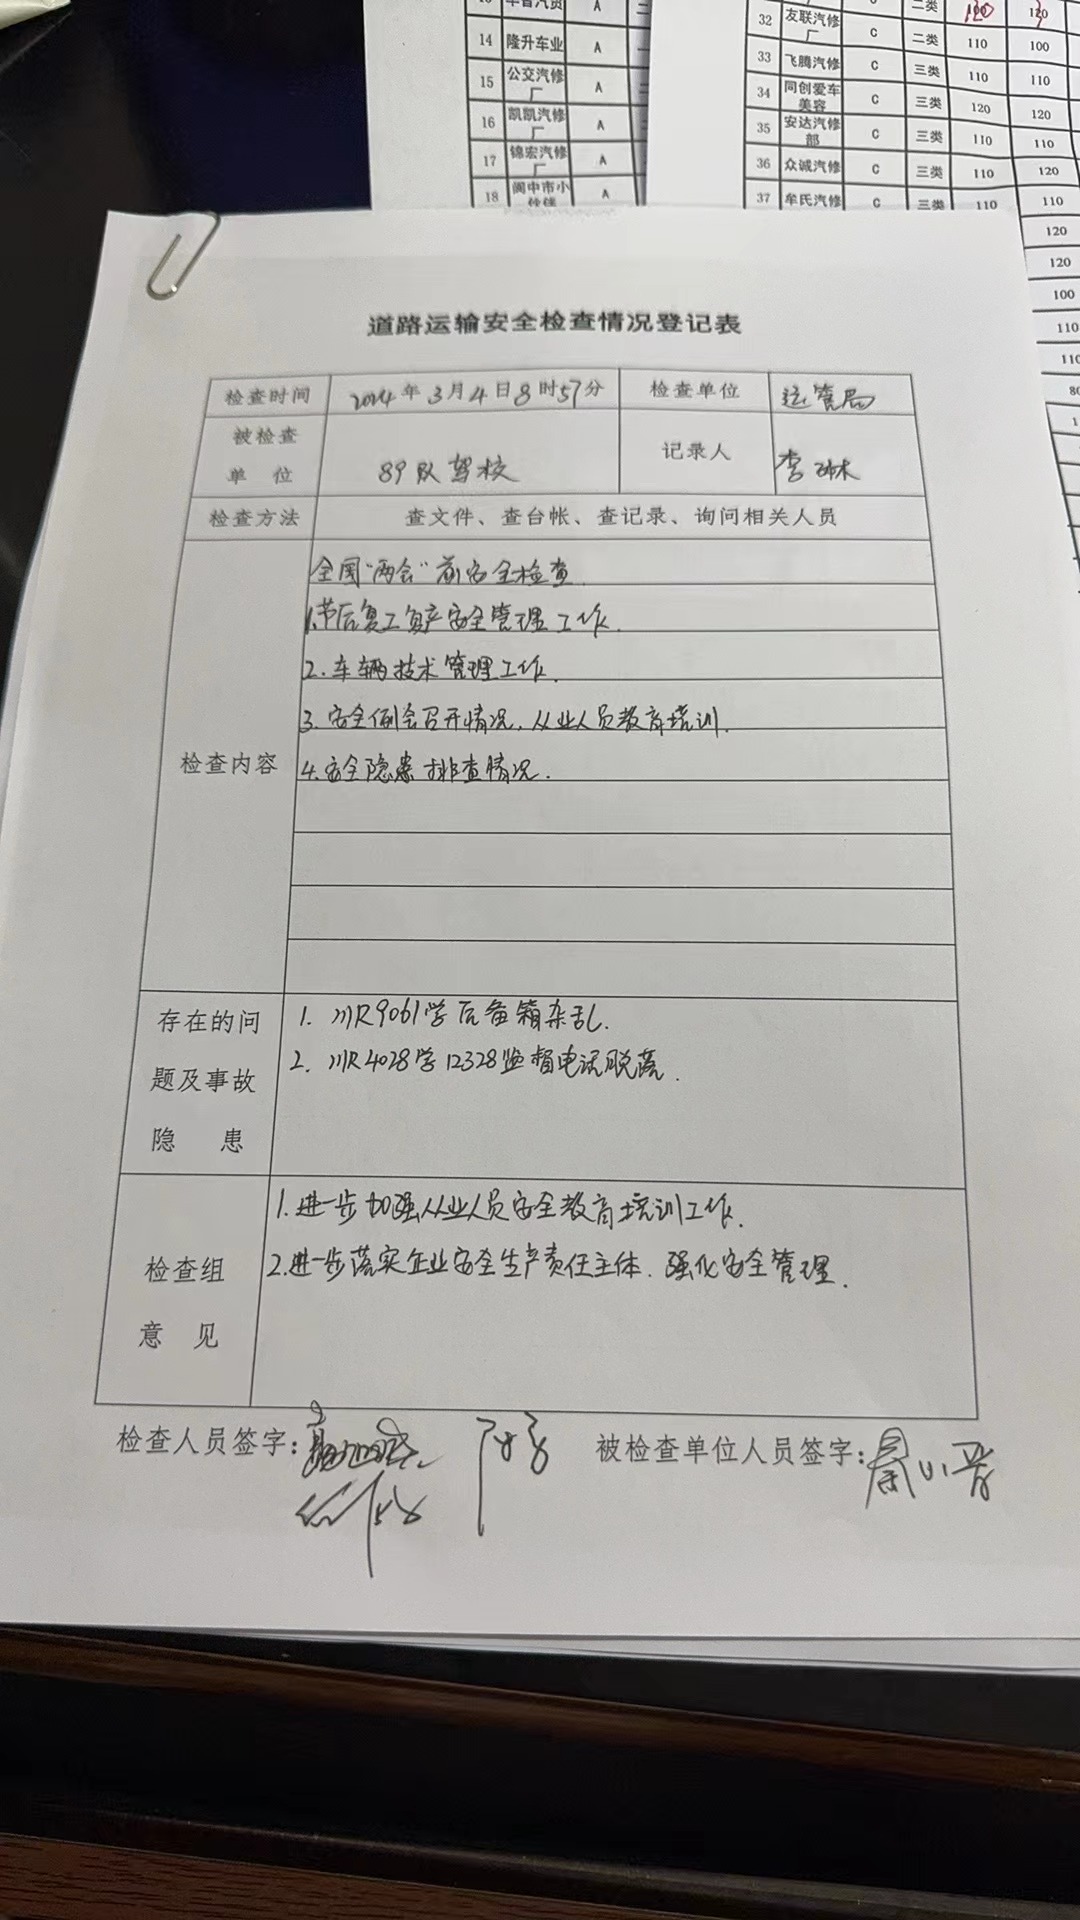 14 隆升车业 A
15 公交汽修厂 A
16 凯凯汽修厂 A
17 锦宏汽修厂 A
18 阆中市小 A
二类 120
32 友联汽修厂 C 二类 110 100
33 飞腾汽修 C 三类 110 110
34 同创爱车美容 C 三类 120 120
35 安达汽修部 C 三类 110 110
36 众诚汽修 C 三类 110 120
37 牟氏汽修 C 三类 110 110
120
120
100
110
道路运输安全检查情况登记表
检查时间 2024年3月4日8时57分 检查单位 运管局
被检查单位 89队驾校 记录人 李
检查方法 查文件、查台帐、查记录、询问相关人员
检查内容
全国“两会”前安全检查
1.节后复工复产安全管理工作.
2.车辆技术管理工作.
3.安全例会召开情况,从业人员教育培训.
4.安全隐患排查情况.
存在的问题及事故隐患
1. 川R9061学后备箱杂乱.
2. 川R4028学12328监督电话脱落.
检查组意见
1.进一步加强从业人员安全教育培训工作.
2.进一步落实企业安全生产责任主体.强化安全管理.
检查人员签字: 被检查单位人员签字: